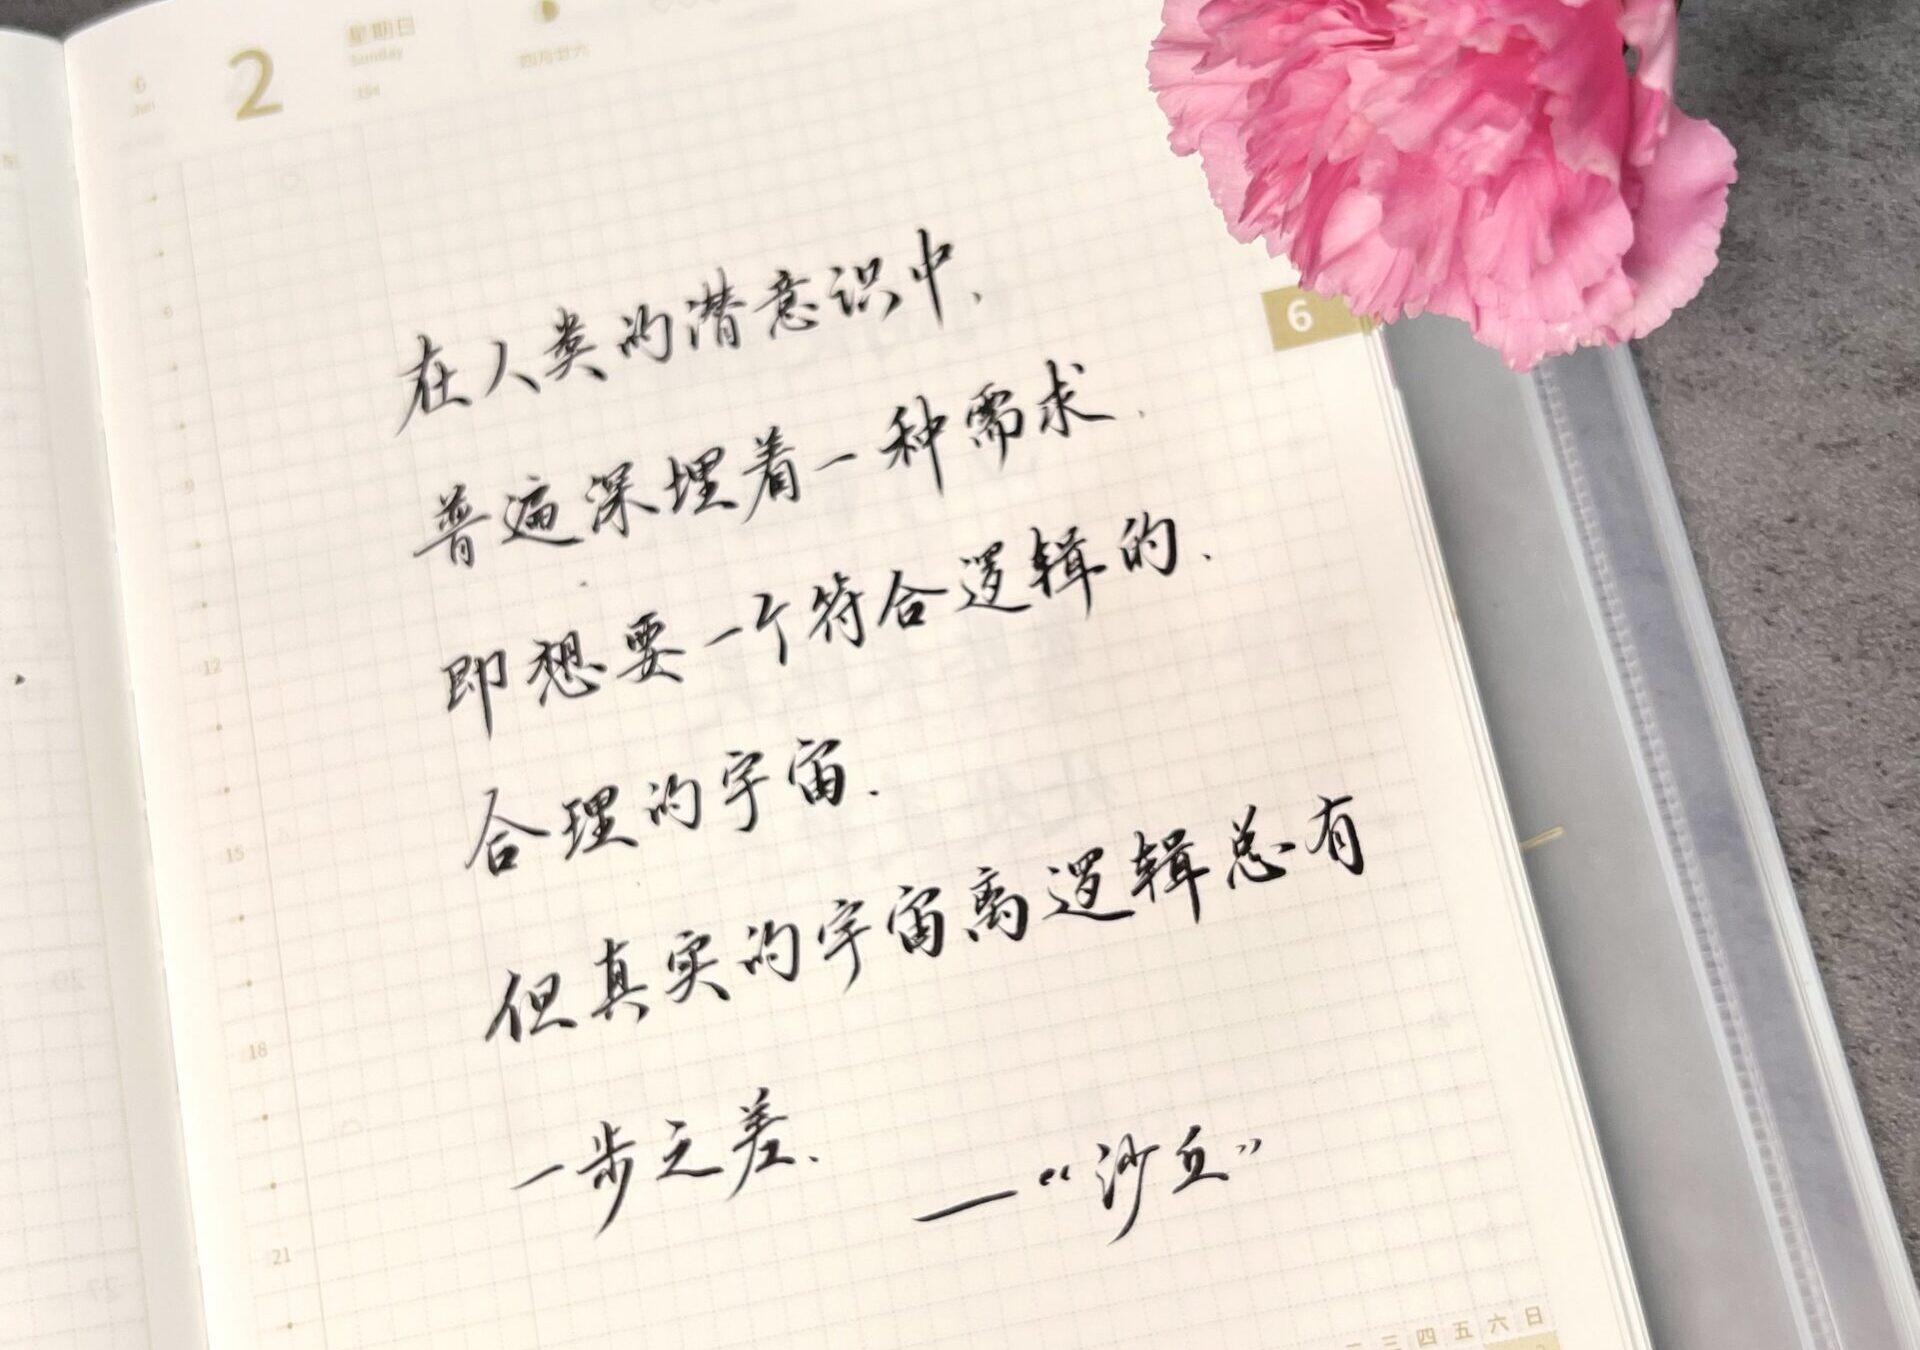 6
Jun
2
星期日
Sunday
154
四月廿六
在人类的潜意识中,
普遍深埋着一种需求.
即想要一个符合逻辑的.
合理的宇宙.
但真实的宇宙离逻辑总有
一步之差.
—“沙丘”
6
6
9
12
15
18
21
二 三 四 五 六 日